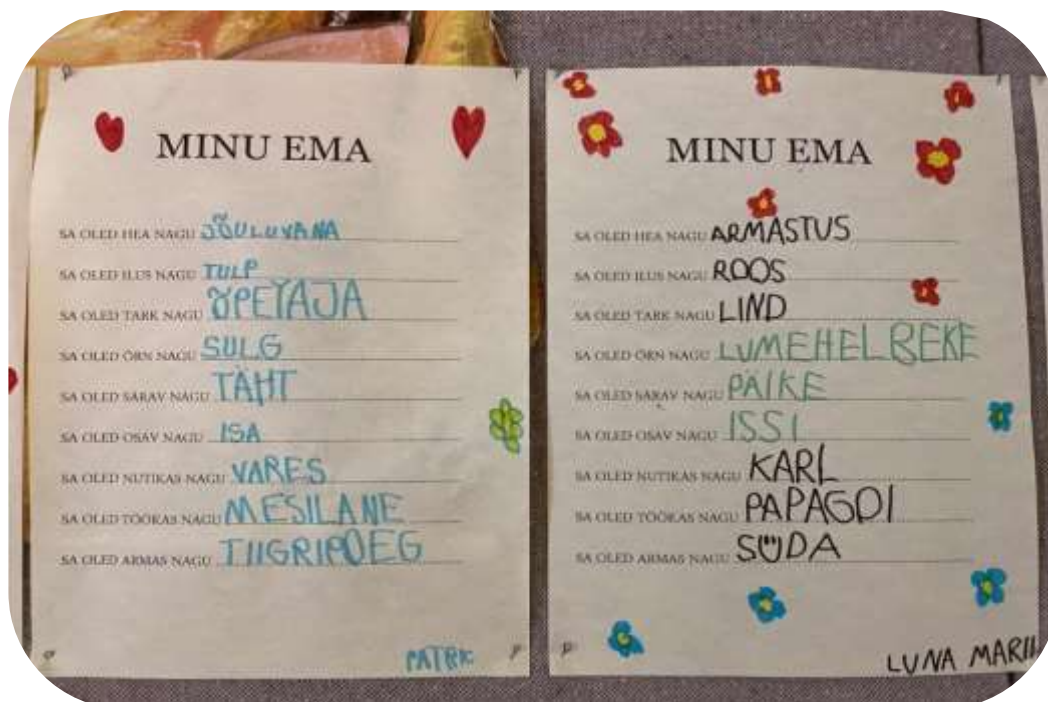 MINU EMA
SA OLED HEA NAGU JÕULUVANA
SA OLED ILUS NAGU TULP
SA OLED TARK NAGU ÕPETAJA
SA OLED ÕRN NAGU SULG
SA OLED SÄRAV NAGU TÄHT
SA OLED OSAV NAGU ISA
SA OLED NUTIKAS NAGU VARES
SA OLED TÖÖKAS NAGU MESILANE
SA OLED ARMAS NAGU TIIGRIPOEG
PATRIC
MINU EMA
SA OLED HEA NAGU ARMASTUS
SA OLED ILUS NAGU ROOS
SA OLED TARK NAGU LIND
SA OLED ÕRN NAGU LUMEHELBEKE
SA OLED SÄRAV NAGU PÄIKE
SA OLED OSAV NAGU ISSI
SA OLED NUTIKAS NAGU KARL
SA OLED TÖÖKAS NAGU PAPAGOI
SA OLED ARMAS NAGU SÜDA
LUNA MARII